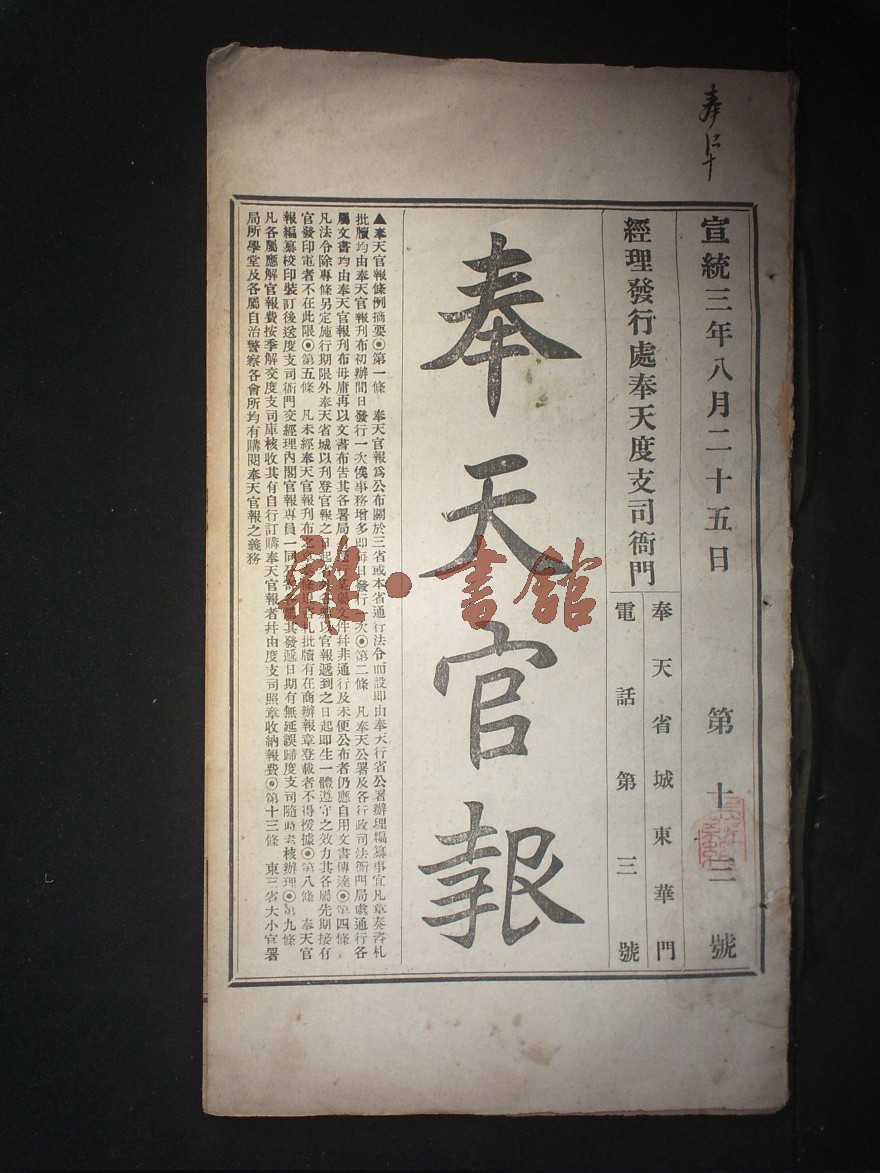 宣統三年八月二十五日　第十三號
經理發行處奉天度支司衙門
奉天省城東華門
電話第三號
奉天官報
▲奉天官報條例摘要◉第一條　奉天官報爲公布關於三省或本省通行法令而設即由奉天行省公署辦理編纂事宜凡章奏咨札
批牘均由奉天官報刊布初辦間日發行一次俟事務增多即每日發行一次◉第二條　凡奉天公署及各行政司法衙門局處通行各
屬文書均由奉天官報刊布毋庸再以文書布告其各署局文件幷非通行及未便公布者仍應自用文書傳達◉第四條
凡法令除專條另定施行期限外奉天省城以刊登官報之日起以官報遞到之日起即生一體遵守之效力其各屬先期接有
官發印電者不在此限◉第五條　凡未經奉天官報刊布之咨札批牘有在商辦報章登載者不得援據◉第八條　奉天官
報編纂校印裝訂後送度支司衙門交經理內閣官報專員一同其發遞日期有無延誤歸度支司隨時考核辦理◉第九條
凡各屬應解官報費按季解交度支司庫核收其有自行訂購奉天官報者幷由度支司照章收納報費◉第十三條　東三省大小官署
局所學堂及各屬自治警察各會所均有購閱奉天官報之義務
書館